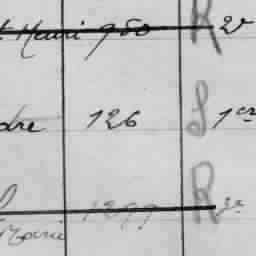 Mari 980 R 2e
dre 126 S 1er
1299 R 2e
Marie